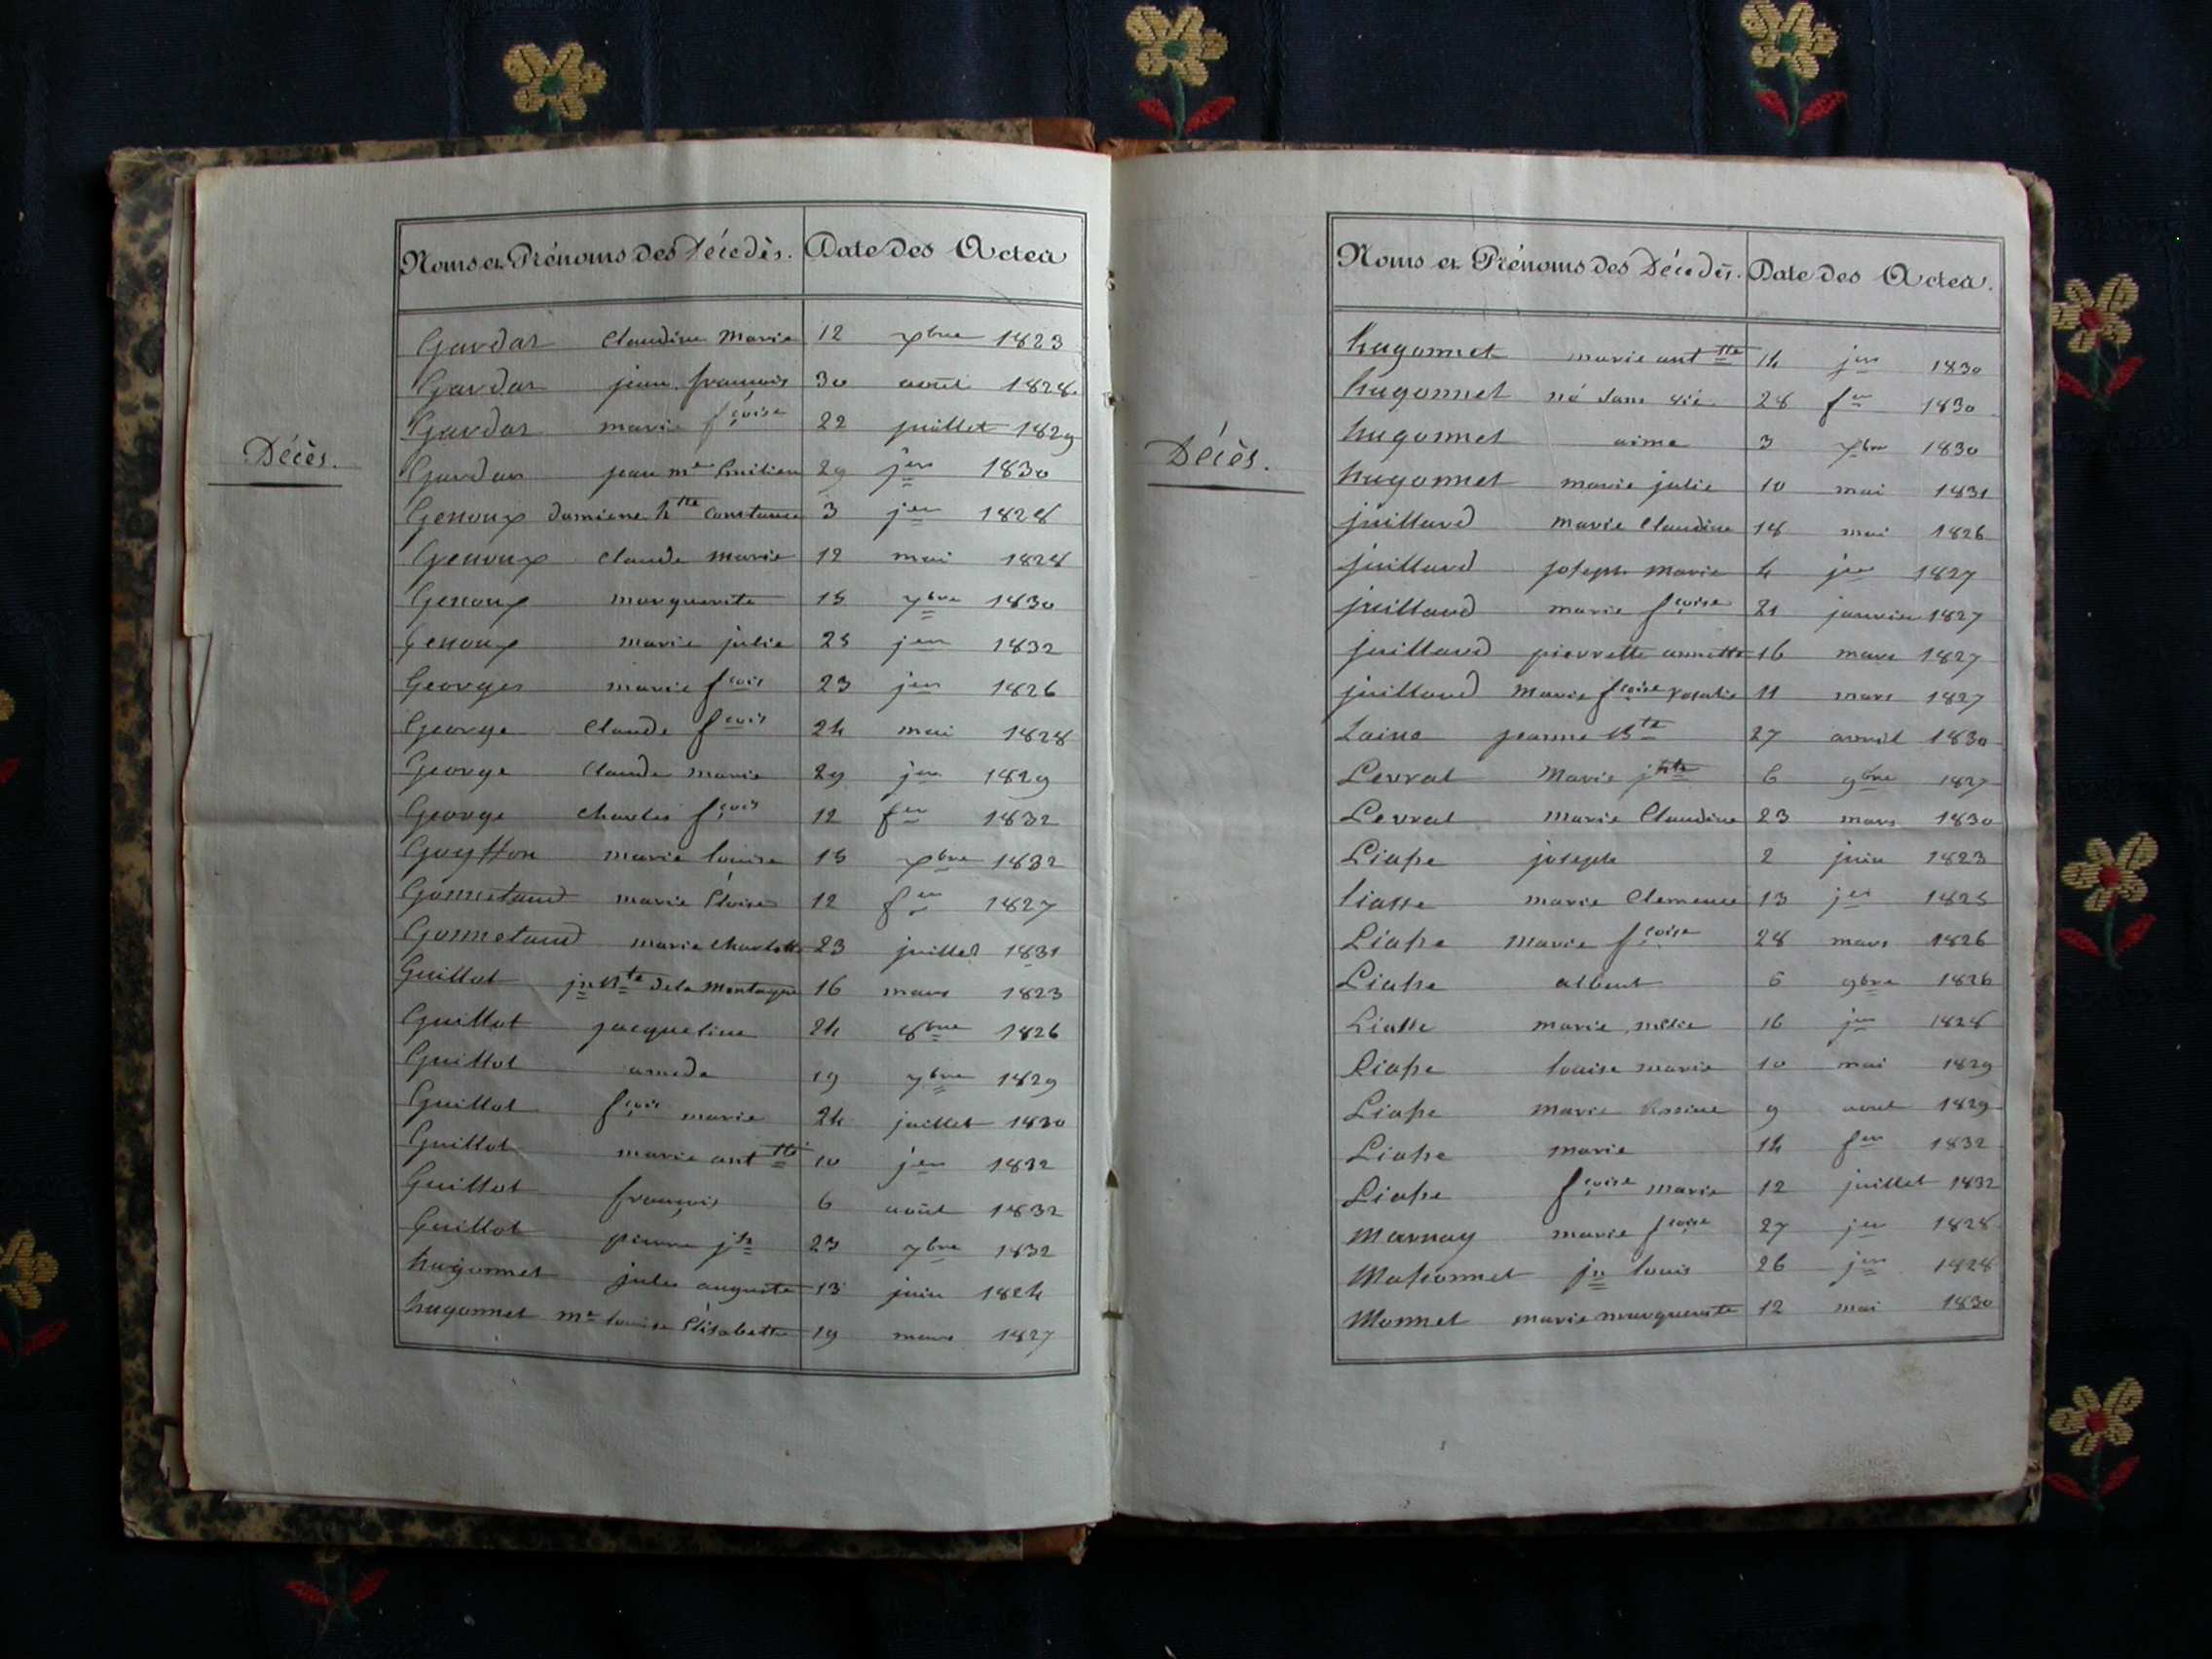 Décès.
Noms et Prénoms des Décedès. Date des Actes
Gardas Claudine Marie 12 xbre 1823
Gardas jean françois 30 août 1828
Gardas marie fçoise 22 juillet 1829
Gardas jean mie Emilien 29 jer 1830
Genoux damiene htte Constance 3 jer 1828
Genoux Claude Marie 12 mai 1828
Genoux marguerite 15 7bre 1830
Genoux marie julie 25 jer 1832
Georges marie fçois 23 jer 1826
George Claude fçois 24 mai 1828
George Claude marie 29 jer 1829
George Charles fçois 12 fer 1832
Goyffon marie louise 15 xbre 1832
Gonnetaud marie Éloise 12 fer 1827
Gonnetaud marie Charlotte 23 juillet 1831
Guillot jn Bte de la Montagne 16 mars 1823
Guillot jacqueline 24 8bre 1826
Guillot amede 19 7bre 1829
Guillot fçois marie 24 juillet 1830
Guillot marie anttte 10 jer 1832
Guillot françois 6 août 1832
Guillot pierre jh 23 7bre 1832
hugonnet jules auguste 13 juin 1824
hugonnet me louise Élisabette 19 mars 1827
Décès.
Noms et Prénoms des Décedès. Date des Actes.
hugonnet marie anttte 14 jer 1830
hugonnet né sans vie 28 fer 1830
hugonnet aime 3 xbre 1830
hugonnet marie julie 10 mai 1831
juillard marie Claudine 18 mai 1826
juillard joseph Marie 4 jer 1827
juillard marie fçoise 21 janvier 1827
juillard pierrette annette 16 mars 1827
juillard Marie fçoise rosalie 11 mars 1827
Laine jeanne Bte 27 avril 1830
Levrat Marie jhte 6 9bre 1827
Levrat marie Claudine 23 mars 1830
Liasse joseph 2 juin 1823
liasse marie Clemence 13 jer 1825
Liasse Marie fçoise 28 mars 1826
Liasse albert 6 9bre 1826
Liasse marie mélie 16 jer 1828
Liasse louise marie 10 mai 1829
Liasse marie 9 aout 1829
Liasse marie 14 fer 1832
Liasse fçoise marie 12 juillet 1832
Marnay marie fçoise 27 jer 1828
Massonnet jn louis 26 jer 1828
Monnet marie marguerite 12 mai 1830